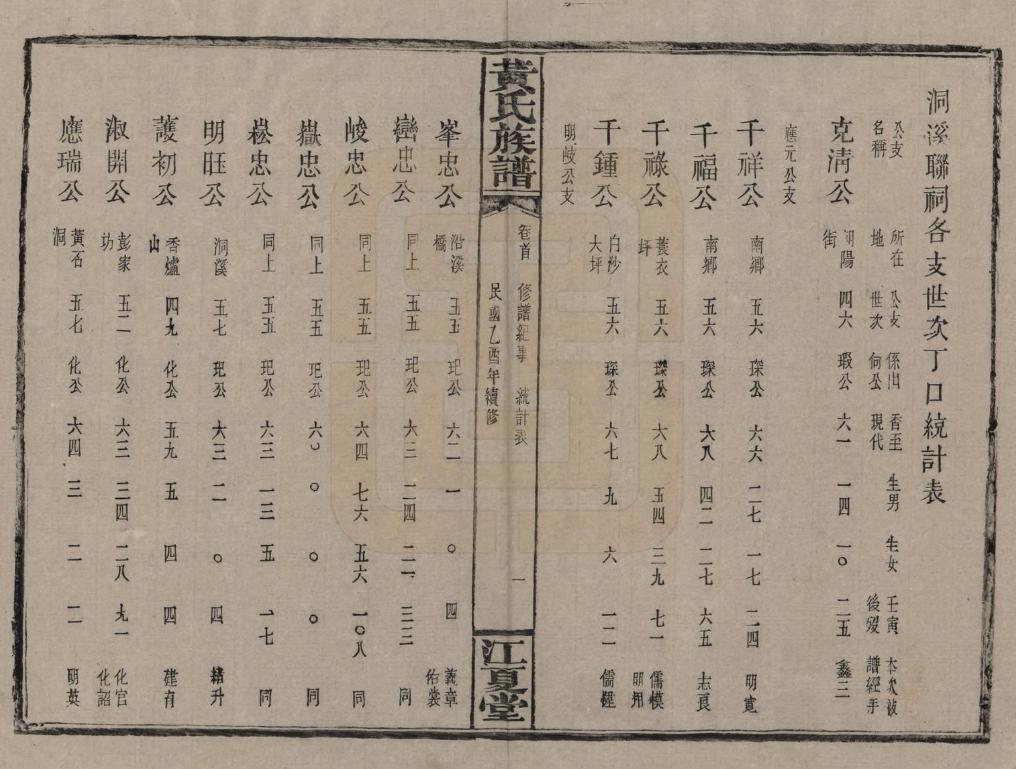 洞溪聯祠各支世次丁口統計表
公支名稱 所在地 公支世次 係出何公 香至現代 生男 生女 壬寅後歿 本次被譜經手
克清公 朝陽街 四六 瑕公 六一 一四 一〇 二五 鑫三
應元公支
千祥公 南鄉 五六 琛公 六六 二七 一七 二四 明寬
千福公 南鄉 五六 琛公 六八 四二 二七 六五 志良
千祿公 蓑衣坪 五六 琛公 六八 五四 三九 七一 儒模 明用
千鍾公 白沙大坪 五六 琛公 六七 九 六 一二 儒
明岐公支
黃氏族譜 卷首 修譜紀事 統計表 民國乙酉年續修 一 江夏堂
峯忠公 沿溪橋 五五 玘公 六二 一 〇 四 義章 佑裳
巒忠公 同上 五五 玘公 六三 二四 二一 三三 同
峻忠公 同上 五五 玘公 六四 七六 五六 一〇八 同
嶽忠公 同上 五五 玘公 六〇 〇 〇 〇 同
崧忠公 同上 五五 玘公 六三 一三 五 一七 同
明旺公 洞溪 五七 玘公 六三 二 〇 四 緒升
護初公 香爐山 四九 化公 五九 五 四 四 建育
淑開公 彭家功 五二 化公 六三 三四 二八 九一 化官 化詔
應瑞公 黃石洞 五七 化公 六四 三 二 二 明英